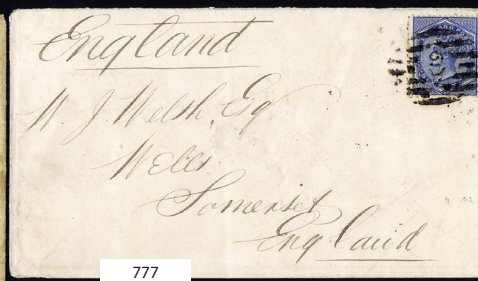 England
W. J. Welsh, Esq
Wells
Somerset
England
777